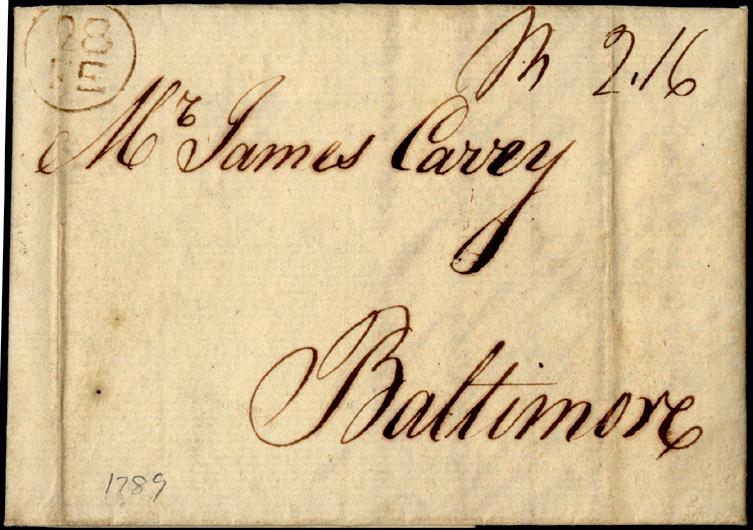 28
FE
2.16
Mr James Carey
Baltimore
1789